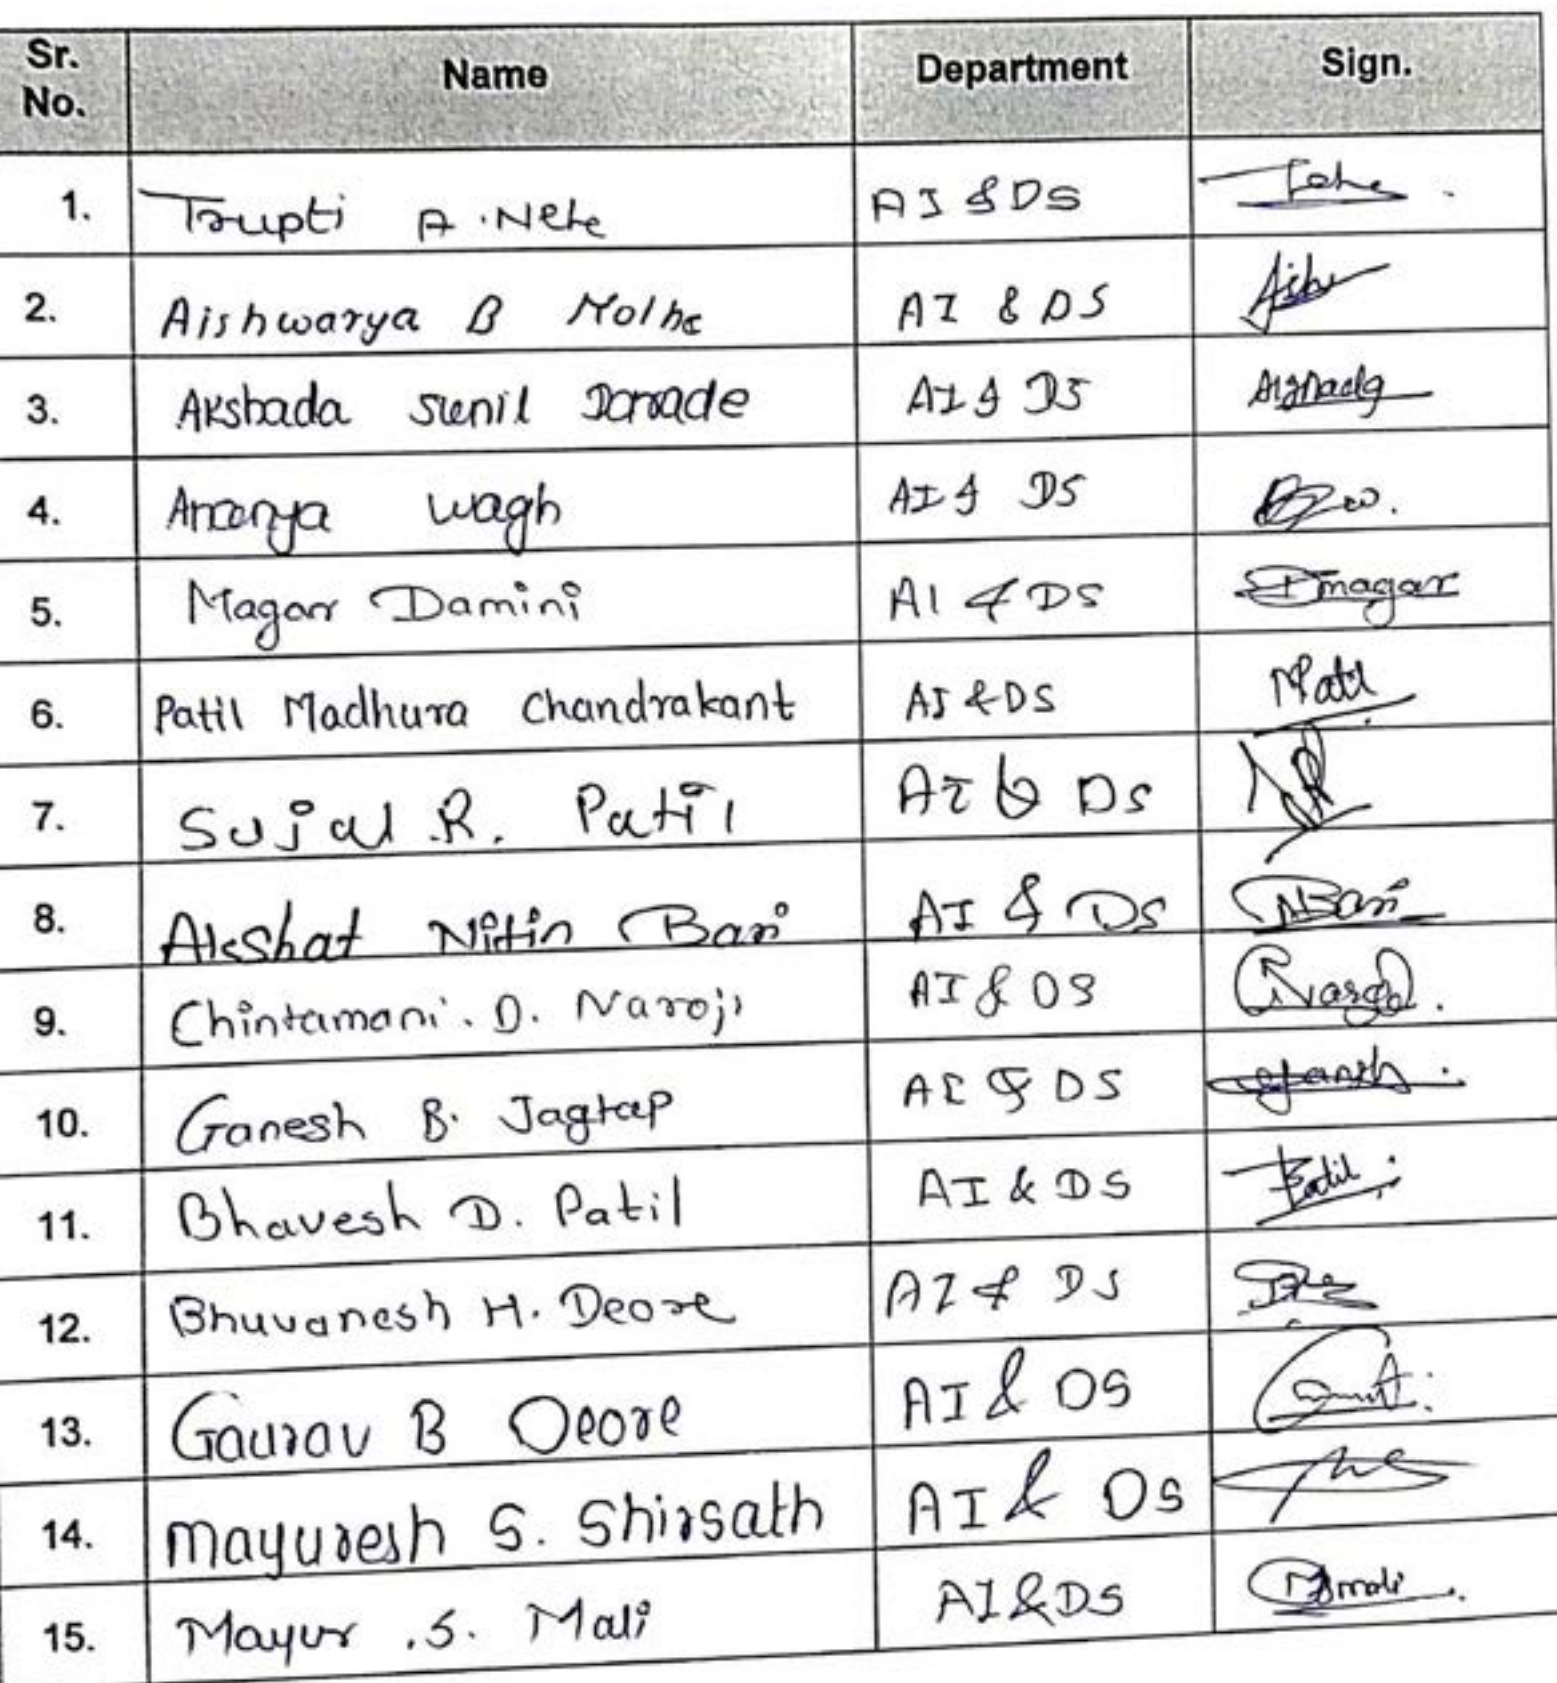 Sr. No. Name Department Sign.
1. Trupti A. Nehe AI & DS
2. Aishwarya B Molhe AI & DS
3. Akshada Sunil AI & DS
4. Ananya Wagh AI & DS
5. Magar Damini AI & DS Dmagar
6. Patil Madhura Chandrakant AI & DS
7. Sujal R. Patil AI & DS
8. Akshat Nitin Bari AI & DS
9. Chintamani. D. Naroji AI & DS
10. Ganesh B. Jagtap AI & DS
11. Bhavesh D. Patil AI & DS Patil
12. Bhuvanesh H. Deore AI & DS
13. Gaurav B Deore AI & DS
14. Mayuresh S. Shirsath AI & DS
15. Mayur .S. Mali AI & DS